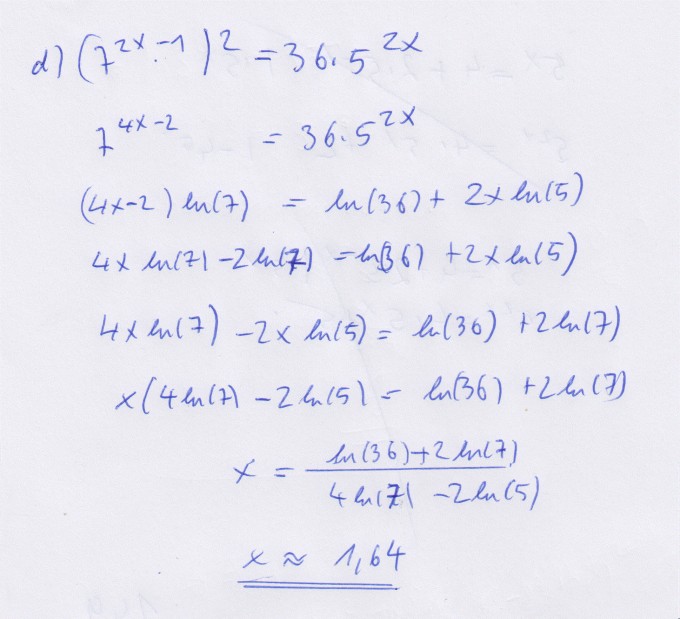 d) (7^{2x-1})^2 = 36·5^{2x}
7^{4x-2} = 36·5^{2x}
(4x-2) ln(7) = ln(36) + 2x ln(5)
4x ln(7) - 2ln(7) = ln(36) + 2x ln(5)
4x ln(7) - 2x ln(5) = ln(36) + 2ln(7)
x(4ln(7) - 2ln(5) = ln(36) + 2ln(7)
x = \frac{ln(36)+2ln(7)}{4ln(7) - 2ln(5)}
x ≈ 1,64